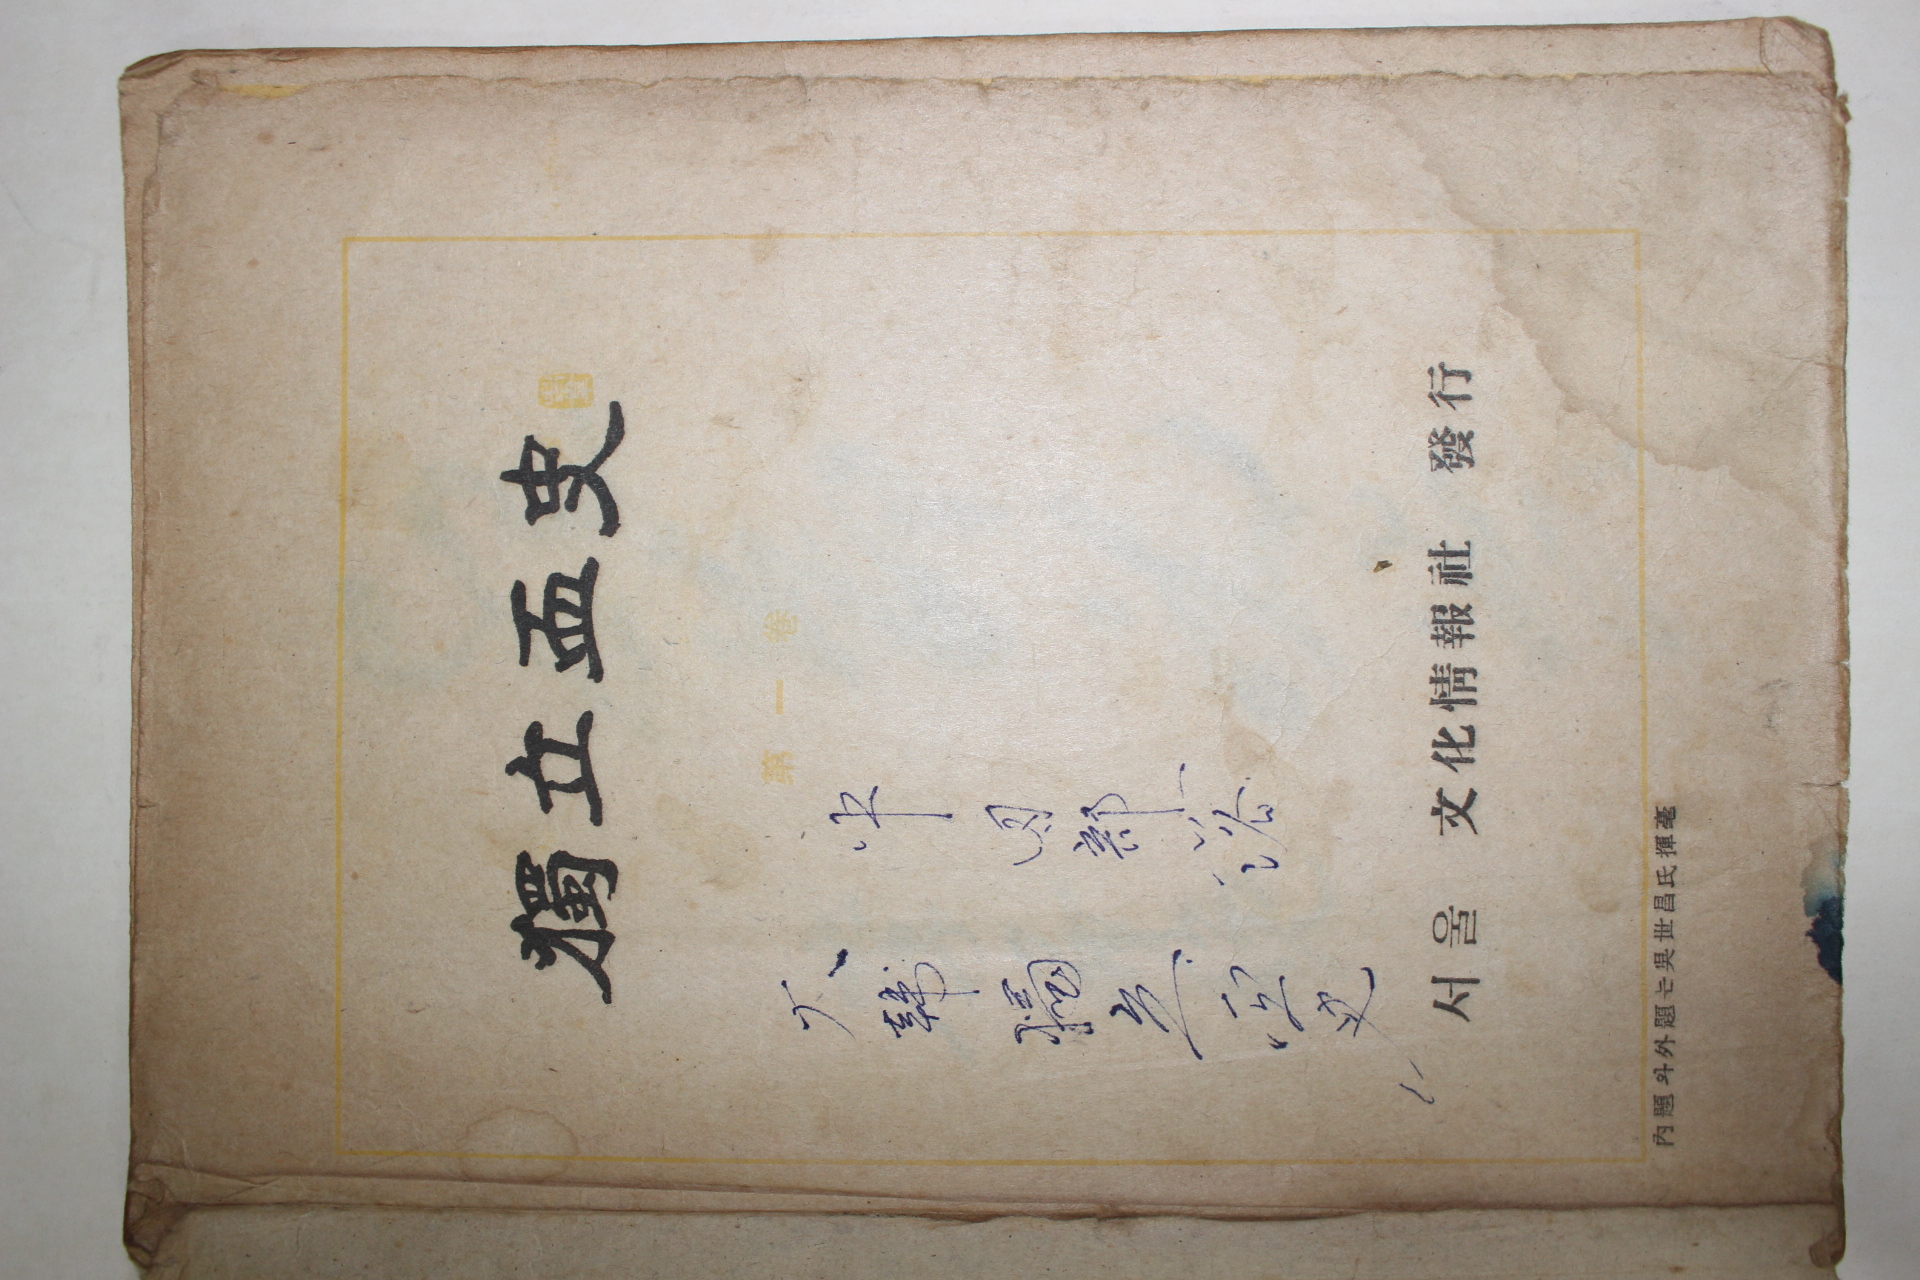 獨立血史
第一卷
大韓獨立血史
서울 文化情報社 發行
內題와外題는吳世昌氏揮毫